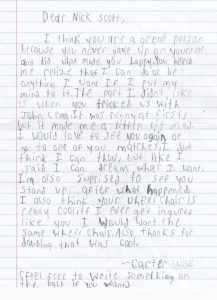 Dear Nick Scott,
I think you are a great person
because you never gave up on yourself
and did what made you happy. You helped
me relize that I can do or be
anything I want if I put my
mind to it. The part I didn't like
is when you tricked us with
John Cena. It was funny at first,
but it made me a little bit mad
I would love to see you again or
go to one of your matches. I don't
think I can thou, but like I
said I can dream what I want.
I'm also suprised to see you
stand up after what happened.
I also think your wheel chair is
really cool. If I ever get ingured
like you I would want the
same wheel chair. Also thanks for
doubling that was cool.
-Carter
(feel free to write something on
the back if you want)